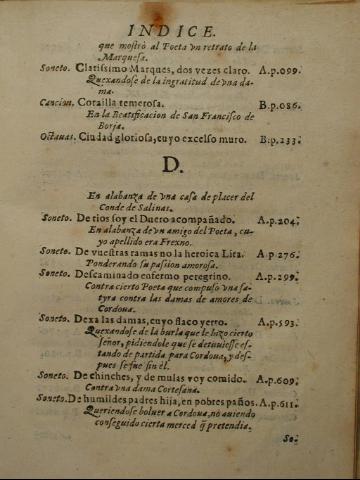 INDICE.
que mostrò al Poeta vn retrato de la
Marquesa.
Soneto. Clarissimo Marques, dos vezes claro. A.p.099.
Quexandose de la ingratitud de vna da-
ma.
Cancion. Coruilla temerosa. B.p.086.
En la Beatificacion de San Francisco de
Borja.
Octauas. Ciudad gloriosa, cuyo excelso muro. B.p.233.
D.
En alabanza de vna casa de placer del
Conde de Salinas.
Soneto. De rios soy el Duero acompañado. A.p.204.
En alabanza de vn amigo del Poeta, cu-
yo apellido era Frexno.
Soneto. De vuestras ramas no la heroica Lira. A.p.276.
Ponderando su passion amorosa.
Soneto. Descaminado enfermo peregrino. A.p.299.
Contra cierto Poeta que compuso vna sa-
tyra contra las damas de amores de
Cordoua.
Soneto. Dexa las damas, cuyo flaco yerro. A.p.593.
Quexandose de la burla que le hizo cierto
señor, pidiendole que se detuuiesse es-
tando de partida para Cordoua, y des-
pues se fue sin èl.
Soneto. De chinches, y de mulas voy comido. A.p.609.
Contra vna dama Cortesana.
Soneto. De humildes padres hija, en pobres paños. A.p.611.
Queriendose boluer a Cordoua, no auiendo
conseguido cierta merced q̃ pretendia.
So-